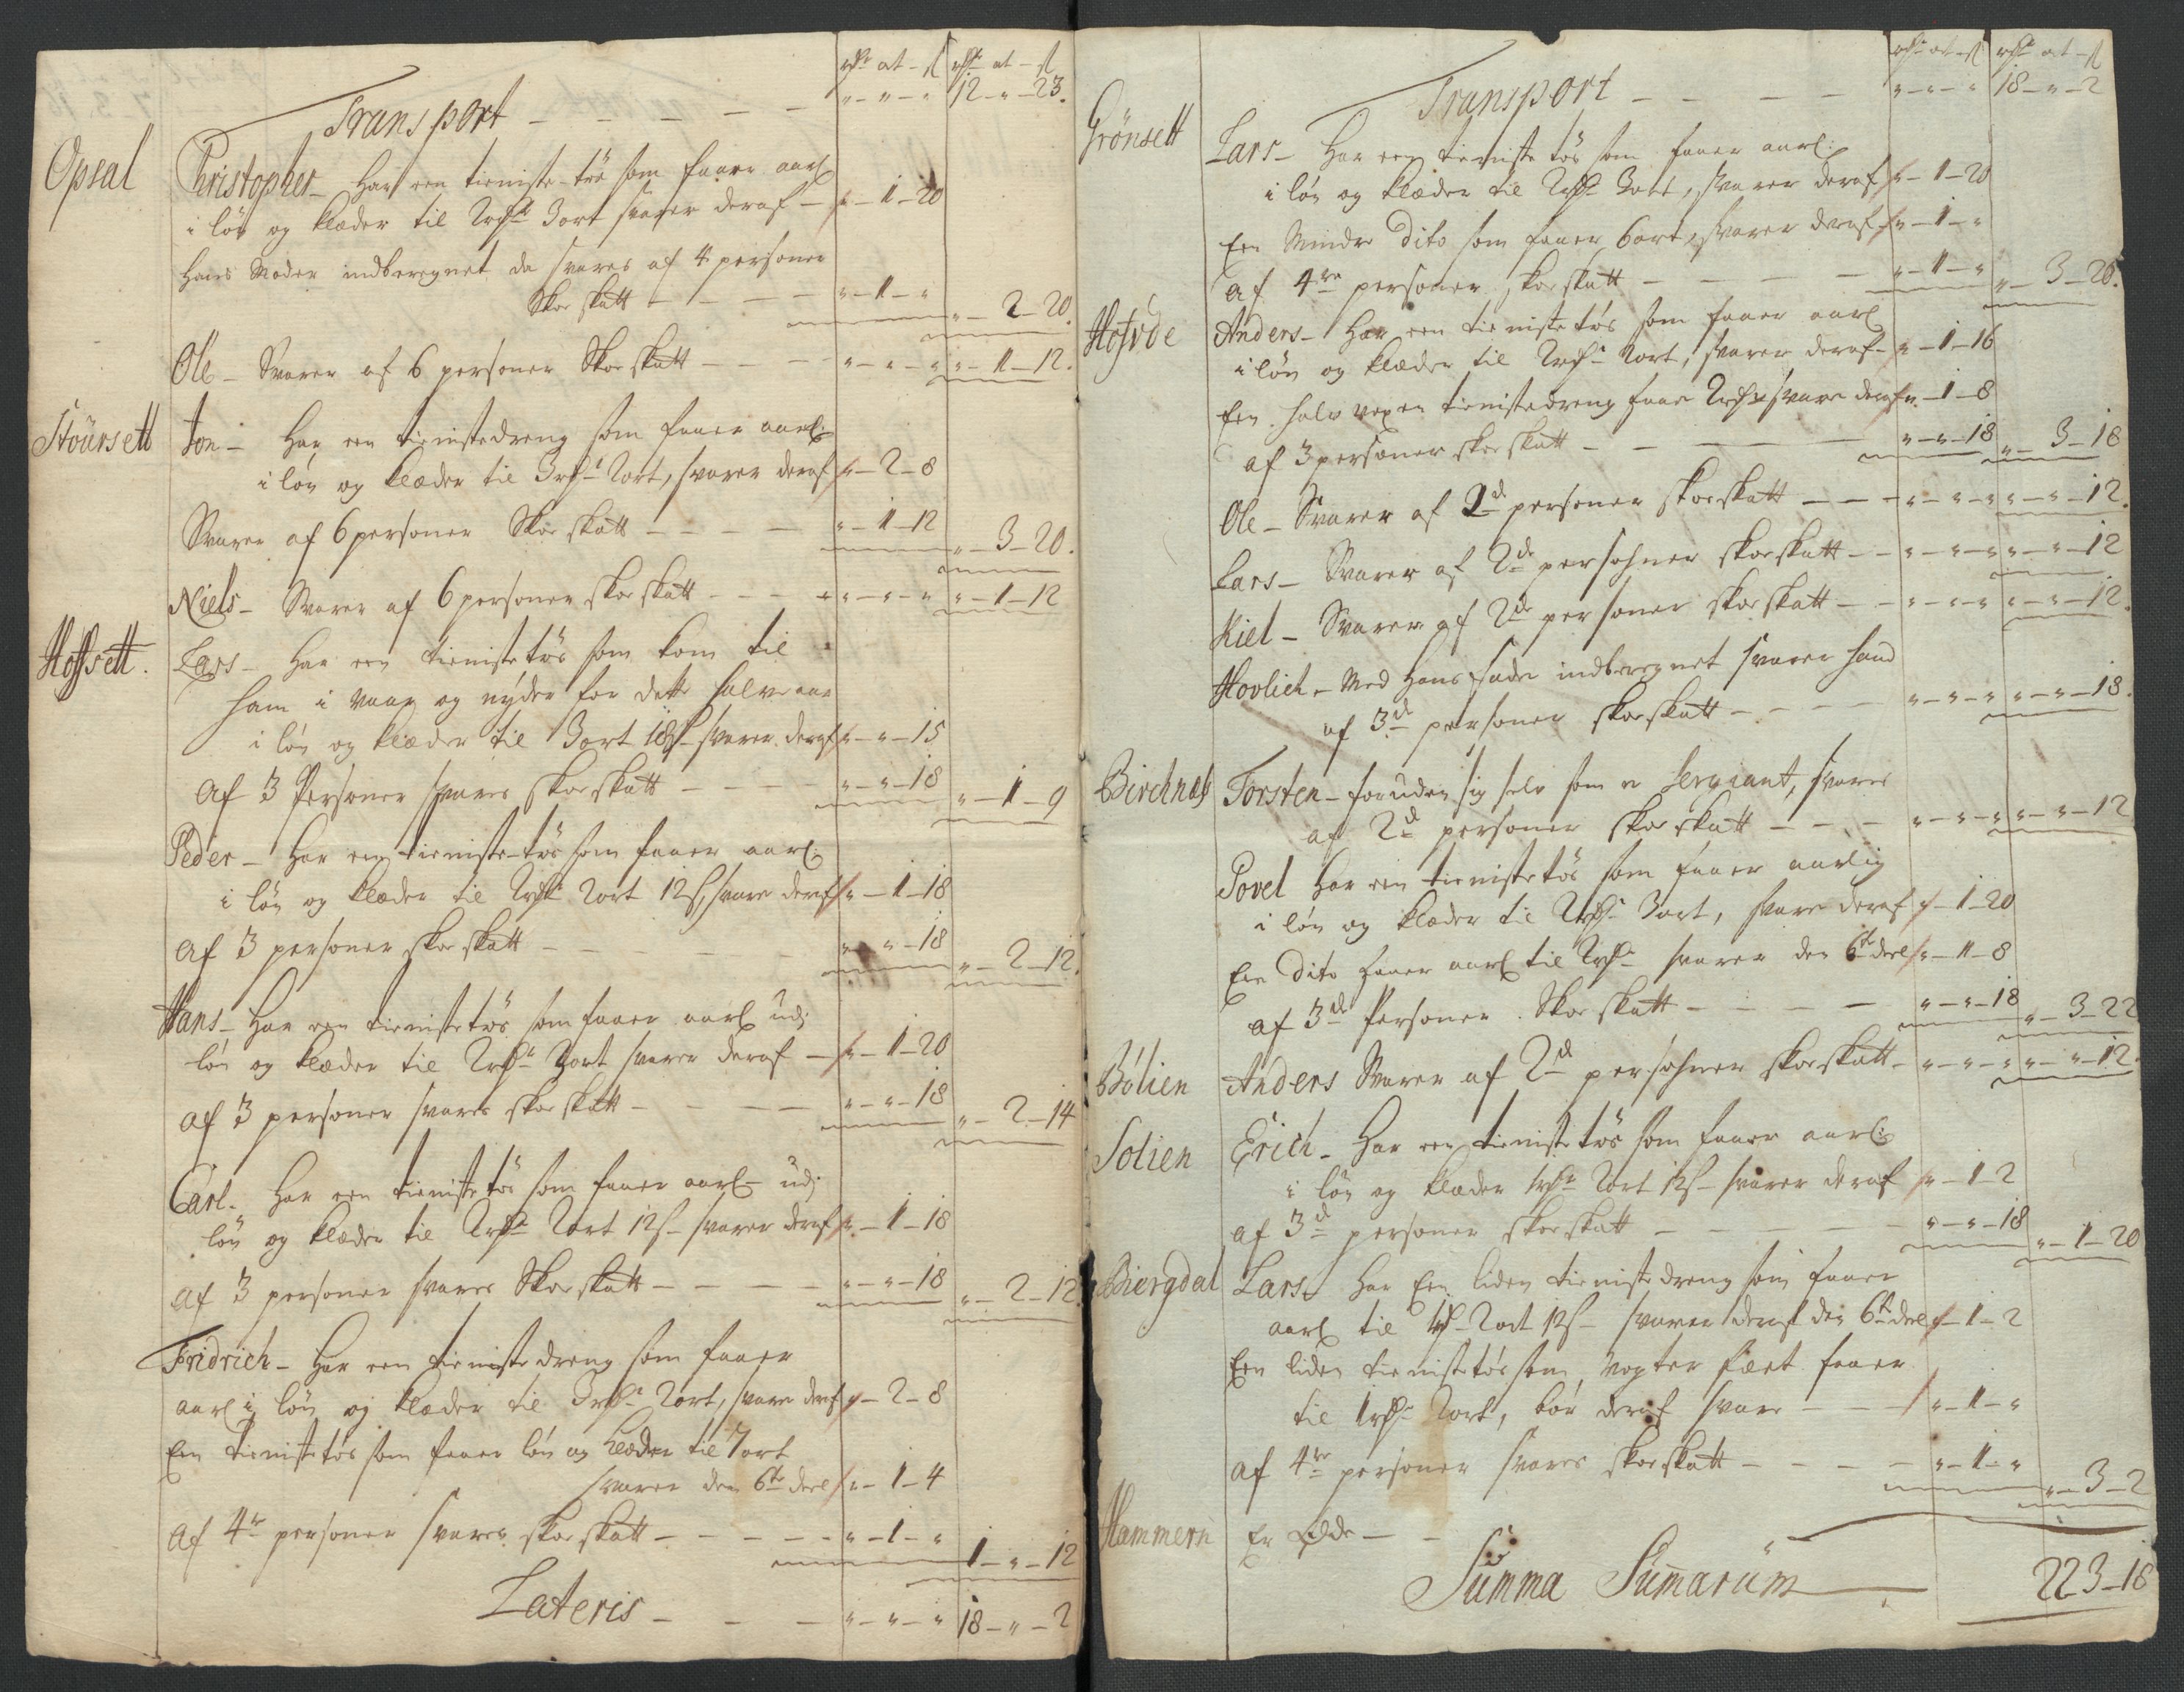 rdr ort ß rdr ort ß
Transport - - - - „ - „ - „ 12 - „ - 23.
Opsal Christopher - Har een tieniste-tös som faaer aarl:
i lön og klæder til 2rdr 3ort svarer deraf - „ - 1 - 20
Hans Moder indberegnet da svares af 4 personer
Skoe skatt - - - - „ - 1 - „ „ - 2 - 20.
Ole - Svarer af 6 personer Skoe skatt - - - „ - „ - „ „ - 1 - 12.
Stöursett Jon - Har een tienistedreng som faaer aarl:
i lön og klæder til 3rdr 2ort, svarer deraf „ - 2 - 8
Svarer af 6 personer Skoe skatt - - - - „ - 1 - 12 „ - 3 - 20.
Niels - Svarer af 6 personer skoe skatt - - - „ - „ - „ „ - 1 - 12
Hoffsett. Lars - Har een tienistetös som kom til
ham i vaar og nyder for dette halve aar
i lön og klæder til 3ort 18ß svarer deraf „ - „ - 15
Af 3 Personer svares skoe skatt - - - „ - „ - 18 „ - 1 - 9
Peder - Har een tieniste-tös som faaer aarl:
i lön og klæder til 2rdr 2ort 12ß, svarer deraf „ - 1 - 18
Af 3 personer skoe skatt - - - - „ - „ - 18 „ - 2 - 12.
Hans - Har een tienistetös som faaer aarl udj
lön og klæder til 2rdr 3ort svarer deraf - „ - 1 - 20
Af 3 personer svares skoe skatt - - - - „ - „ - 18 „ - 2 - 14
Carl. Har een tienistetös som faaer aarl - udj
lön og klæder til 2rdr 2ort 12ß - svarer deraf „ - 1 - 18
Af 3 personer svares Skoe skatt - - - - „ - „ - 18 „ - 2 - 12.
Fridrich - Har een tienistedreng som faaer
aarl i lön og klæder til 3rdr 2ort, svarer deraf „ - 2 - 8
Een tienistetös som faaer lön og klæder til 7ort
svarer den 6te deel „ - 1 - 4
Af 4re personer svarer skoe skatt - - - - „ - 1 - „ 1 - „ - 12
Lateris - - - - „ - „ - „ 18 - „ - 2
rdr ort - ß rdr ort - ß
Transport - - - - „ - „ - „ 18 - „ - 2
Grönsett Lars - Har een tieniste tös som faaer aarl:
i lön og klæder til 2rdr 3ort, svarer deraf „ - 1 - 20
Een Mindre Dito som faaer 6ort, svarer deraf „ - 1 - „
Af 4re personer skoe skatt - - - - „ - 1 - „ „ - 3 - 20.
Hofvde Anders - Har een tienistetös som faaer aarl
i lön og klæder til 2rdr 2ort, svarer deraf - „ - 1 - 16
Een halv voxen tienistedreng faaer 2rdr svarer deraf „ - 1 - 8
af 3 personer skoe skatt - - - „ - „ - 18 „ - 3 - 18
Ole - Svarer af 2de personer skoeskatt - - - „ - „ - „ „ - „ - 12.
Lars - Svarer af 2de persohner skoeskatt - - „ - „ - „ „ - „ - 12
Kiel - Svarer af 2de personer skoe skatt - - „ - „ - „ „ - „ - 12.
Hovlich - Med Hans Fader indberegnet svarer hand
af 3de personer skoeskatt - - - - „ - „ - „ „ - „ - 18.
Birchnæs Torsten - foruden sig selv som er Sergiant, svarer
af 2de personer skoe skatt - - - „ - „ - „ „ - „ - 12
Povel Har een tienistetös som faaer aarlig
i lön og klæder til 2rdr 3ort, svarer deraf „ - 1 - 20
Een Dito faaer aarl til 2rdr svarer den 6te deel „ - 1 - 8
af 3de Personer Skoe skatt - - - - „ - „ - 18 „ - 3 - 22
Bölien Anders Svarer af 2de persohner skoeskatt - „ - „ - „ „ - „ - 12.
Solien Erich - Har een tienistetös som faaer aarl:
i lön og klæder 1rdr 2ort 12ß - svarer deraf „ - 1 - 2
af 3de personer skoeskatt - - - - „ - „ - 18 „ - 1 - 20
Biergdal Lars Har Een liden tienistedreng som faaer
aarl til 1rdr 2ort 12ß - svarer deraf den 6te deel „ - 1 - 2
Een liden tienistetös som vogter fæet faaer
til 1rdr 2ort, bör deraf svare - - „ - 1 - „
Af 4re personer svares skoeskatt - - - - „ - 1 - „ „ - 3 - 2
Hammern Er Øde - -
Summa Sumarum 22 3 - 18